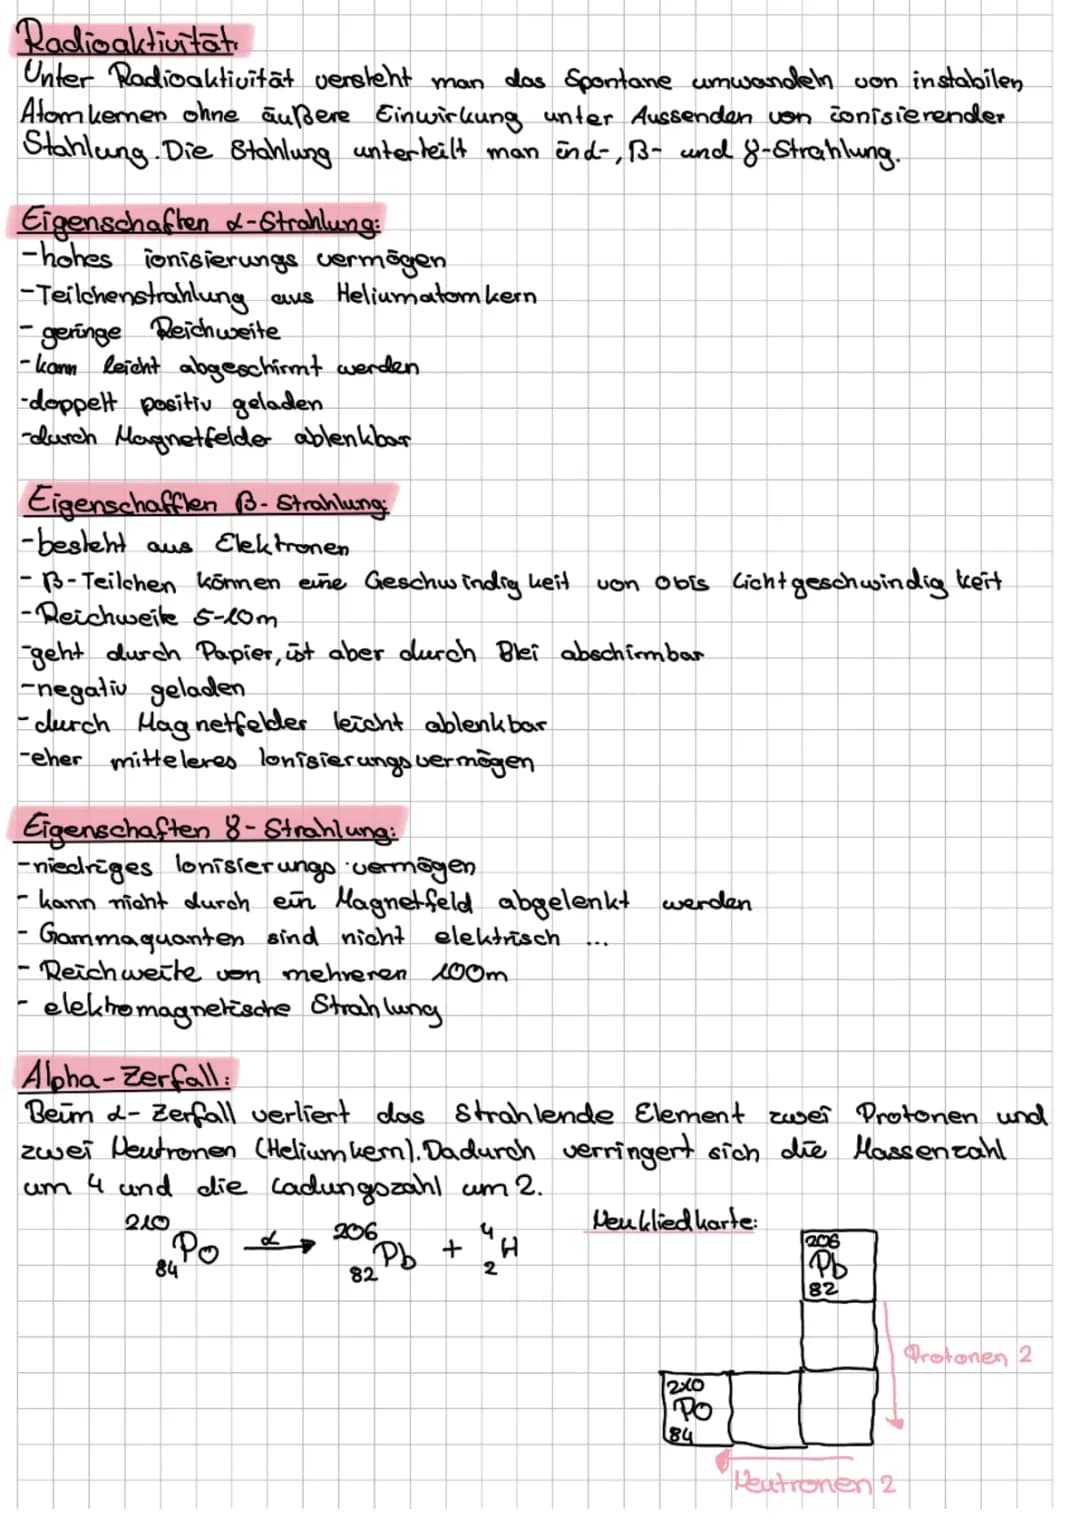 Radioaktivität:
Unter Radioaktivität versteht man das Spontane umwandeln von instabilen
Atomkernen ohne äußere Einwirkung unter Aussenden von ionisierender
Stahlung. Die Stahlung unterteilt man ind-, β- und γ-Strahlung.
Eigenschaften α-Strahlung:
-hohes ionisierungs vermögen
-Teilchenstrahlung aus Heliumatomkern
- geringe Reichweite
-kann leicht abgeschirmt werden
-doppelt positiv geladen
-durch Magnetfelder ablenkbar
Eigenschafften β-Strahlung:
-besteht aus Elektronen
- β-Teilchen können eine Geschwindigkeit von 0 bis Lichtgeschwindigkeit
-Reichweite 5-10m
-geht durch Papier, ist aber durch Blei abschirmbar
-negativ geladen
-durch Magnetfelder leicht ablenkbar
-eher mitteleres Ionisierungsvermögen
Eigenschaften γ-Strahlung:
-niedriges Ionisierungs vermögen
- kann nicht durch ein Magnetfeld abgelenkt werden
- Gammaquanten sind nicht elektrisch ...
- Reichweite von mehreren 100m
- elektromagnetische Strahlung
Alpha-Zerfall:
Beim α-Zerfall verliert das Strahlende Element zwei Protonen und
zwei Neutronen (Heliumkern). Dadurch verringert sich die Massenzahl
um 4 und die Ladungszahl um 2.
210 84 Po α→ 206 82 Pb + 4 2 H
Neukliedkarte:
206
Pb
82
Protonen 2
210
Po
84
Neutronen 2